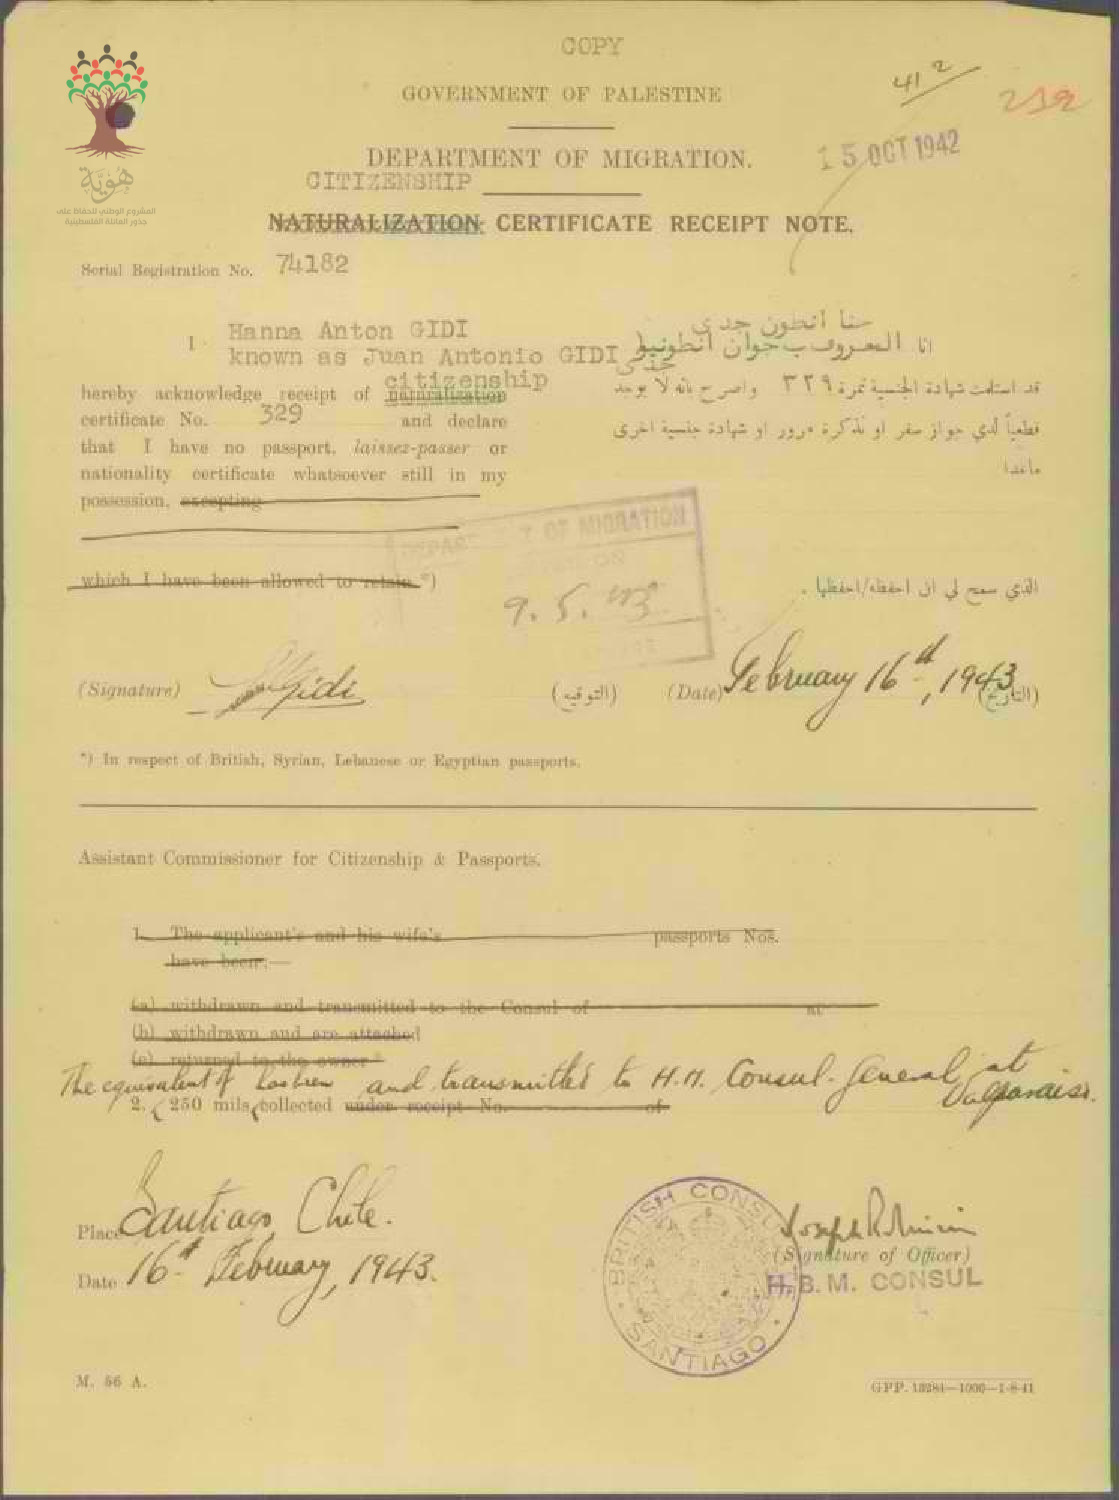 COPY
41 2
GOVERNMENT OF PALESTINE
212
DEPARTMENT OF MIGRATION.
15 OCT 1942
هوية
المشروع الوطني للحفاظ على
جذور العائلة الفلسطينية
CITIZENSHIP
NATURALIZATION CERTIFICATE RECEIPT NOTE.
Serial Registration No. 74182
I Hanna Anton GIDI
known as Juan Antonio GIDI
حنا انطون جدي
انا المعروف ب خوان انطونيو
جدي
citizenship
hereby acknowledge receipt of naturalization
certificate No. 329 and declare
that I have no passport, laissez-passer or
nationality certificate whatsoever still in my
possession, excepting
قد استلمت شهادة الجنسية نمرة ٣٢٩ واصرح بانه لا يوجد
قطعياً لدي جواز سفر او تذكرة مرور او شهادة جنسية اخرى
ماعدا
DEPARTMENT OF MIGRATION
9. 5. 43
which I have been allowed to retain.*)
الذي سمح لي ان احفظه/احفظها .
(Signature) Gidi (التوقيع) (Date) February 16th, 1943 (التاريخ)
*) In respect of British, Syrian, Lebanese or Egyptian passports.
Assistant Commissioner for Citizenship & Passports.
1. The applicant's and his wife's passports Nos.
have been:—
(a) withdrawn and transmitted to the Consul of at
(b) withdrawn and are attached
(c) returned to the owner*
The equivalent of and transmitted to H.M. Consul-General at
Valparaiso.
2. 250 mils, collected under receipt No. of
Place Santiago Chile.
Date 16th February, 1943.
BRITISH CONSUL
SANTIAGO
(Signature of Officer)
H.B.M. CONSUL
M. 56 A.
GPP. 13284—1000—1-8-41